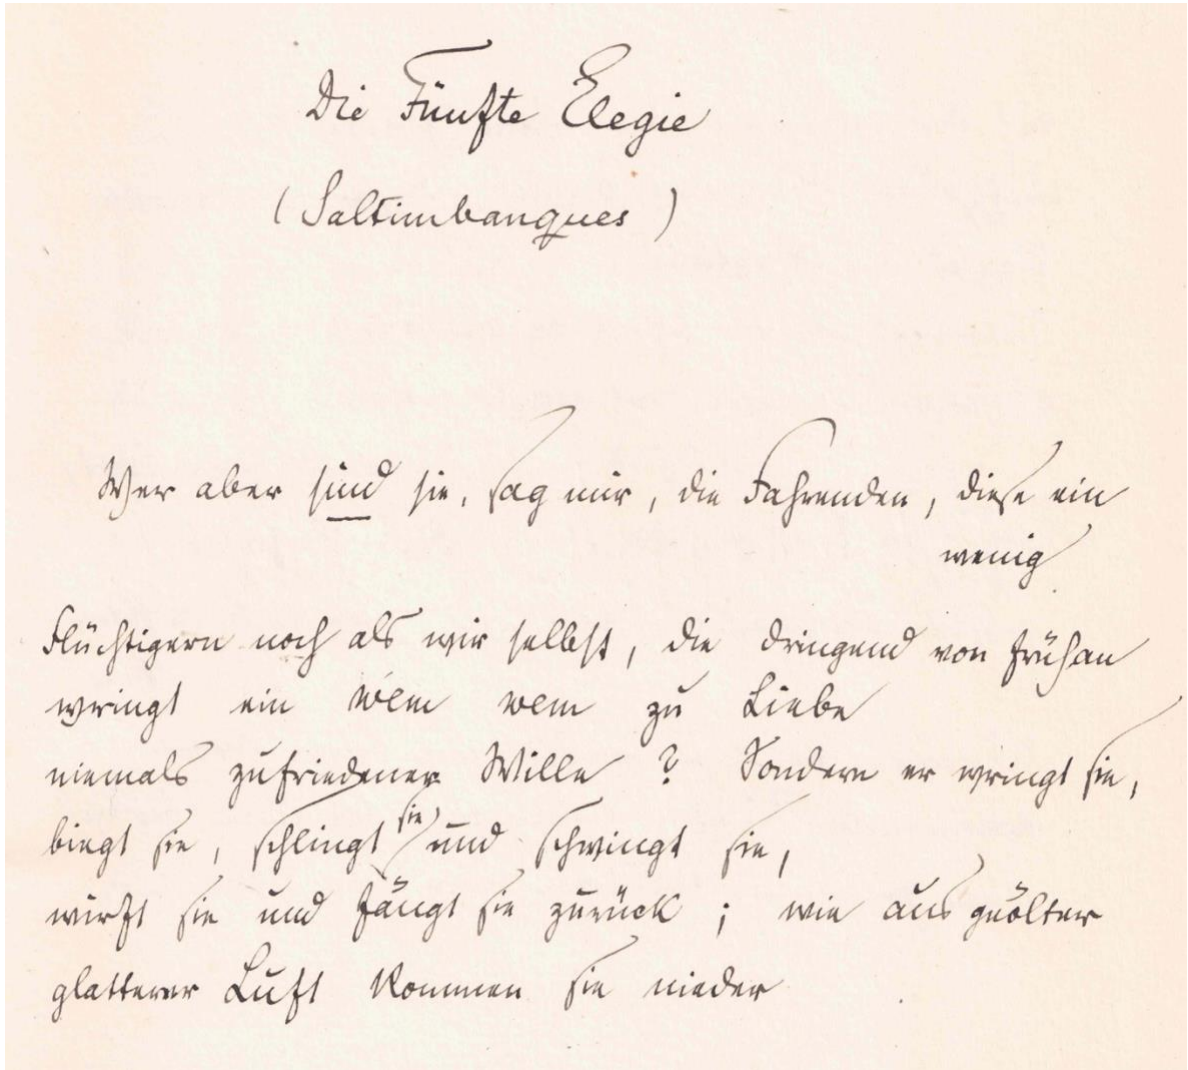 Die Fünfte Elegie
(Saltimbanques)
Wer aber sind sie, sag mir, die Fahrenden, diese ein
wenig
Flüchtigern noch als wir selbst, die dringend von früh an
wringt ein wem wem zu Liebe
niemals zufriedener Wille? Sondern er wringt sie,
biegt sie, schlingt sie und schwingt sie,
wirft sie und fängt sie zurück; wie aus geölter
glatterer Luft kommen sie nieder